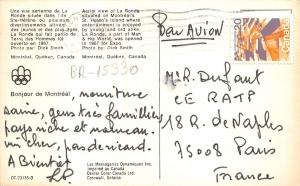 Une vue aérienne de La
Ronde située dans l'île
Ste-Hélène où plusieurs
divertissements attendent
jeunes et des plus âgés.
La Ronde fait partie de
Terre des Hommes fut
ouverte en 1967.
Photo par: Dick Smith
Montréal, Québec, Canada
Aerial view of La Ronde
situated on Montréal's
St. Helen's Island is
enjoyed by young and old alike.
La Ronde, a part of Man
& His World, was opened
in 1967 for Expo.
Photo by: Dick Smith
Montréal, Québec, Canada
BR-15330
Bonjour de Montréal, nourriture
saine, gens très familliers
pays riche et nouveau,
un cher, pas de ricard.
A Bientôt
Les Messageries Dynamiques Inc.
Imprimé au Canada
Dexter Color Canada Ltd.
Cornwall, Ontario
DT-73135-D
Par AVION
Mr. R. Dufant
CE RATP
18 R. de Naples
75008 Paris
France